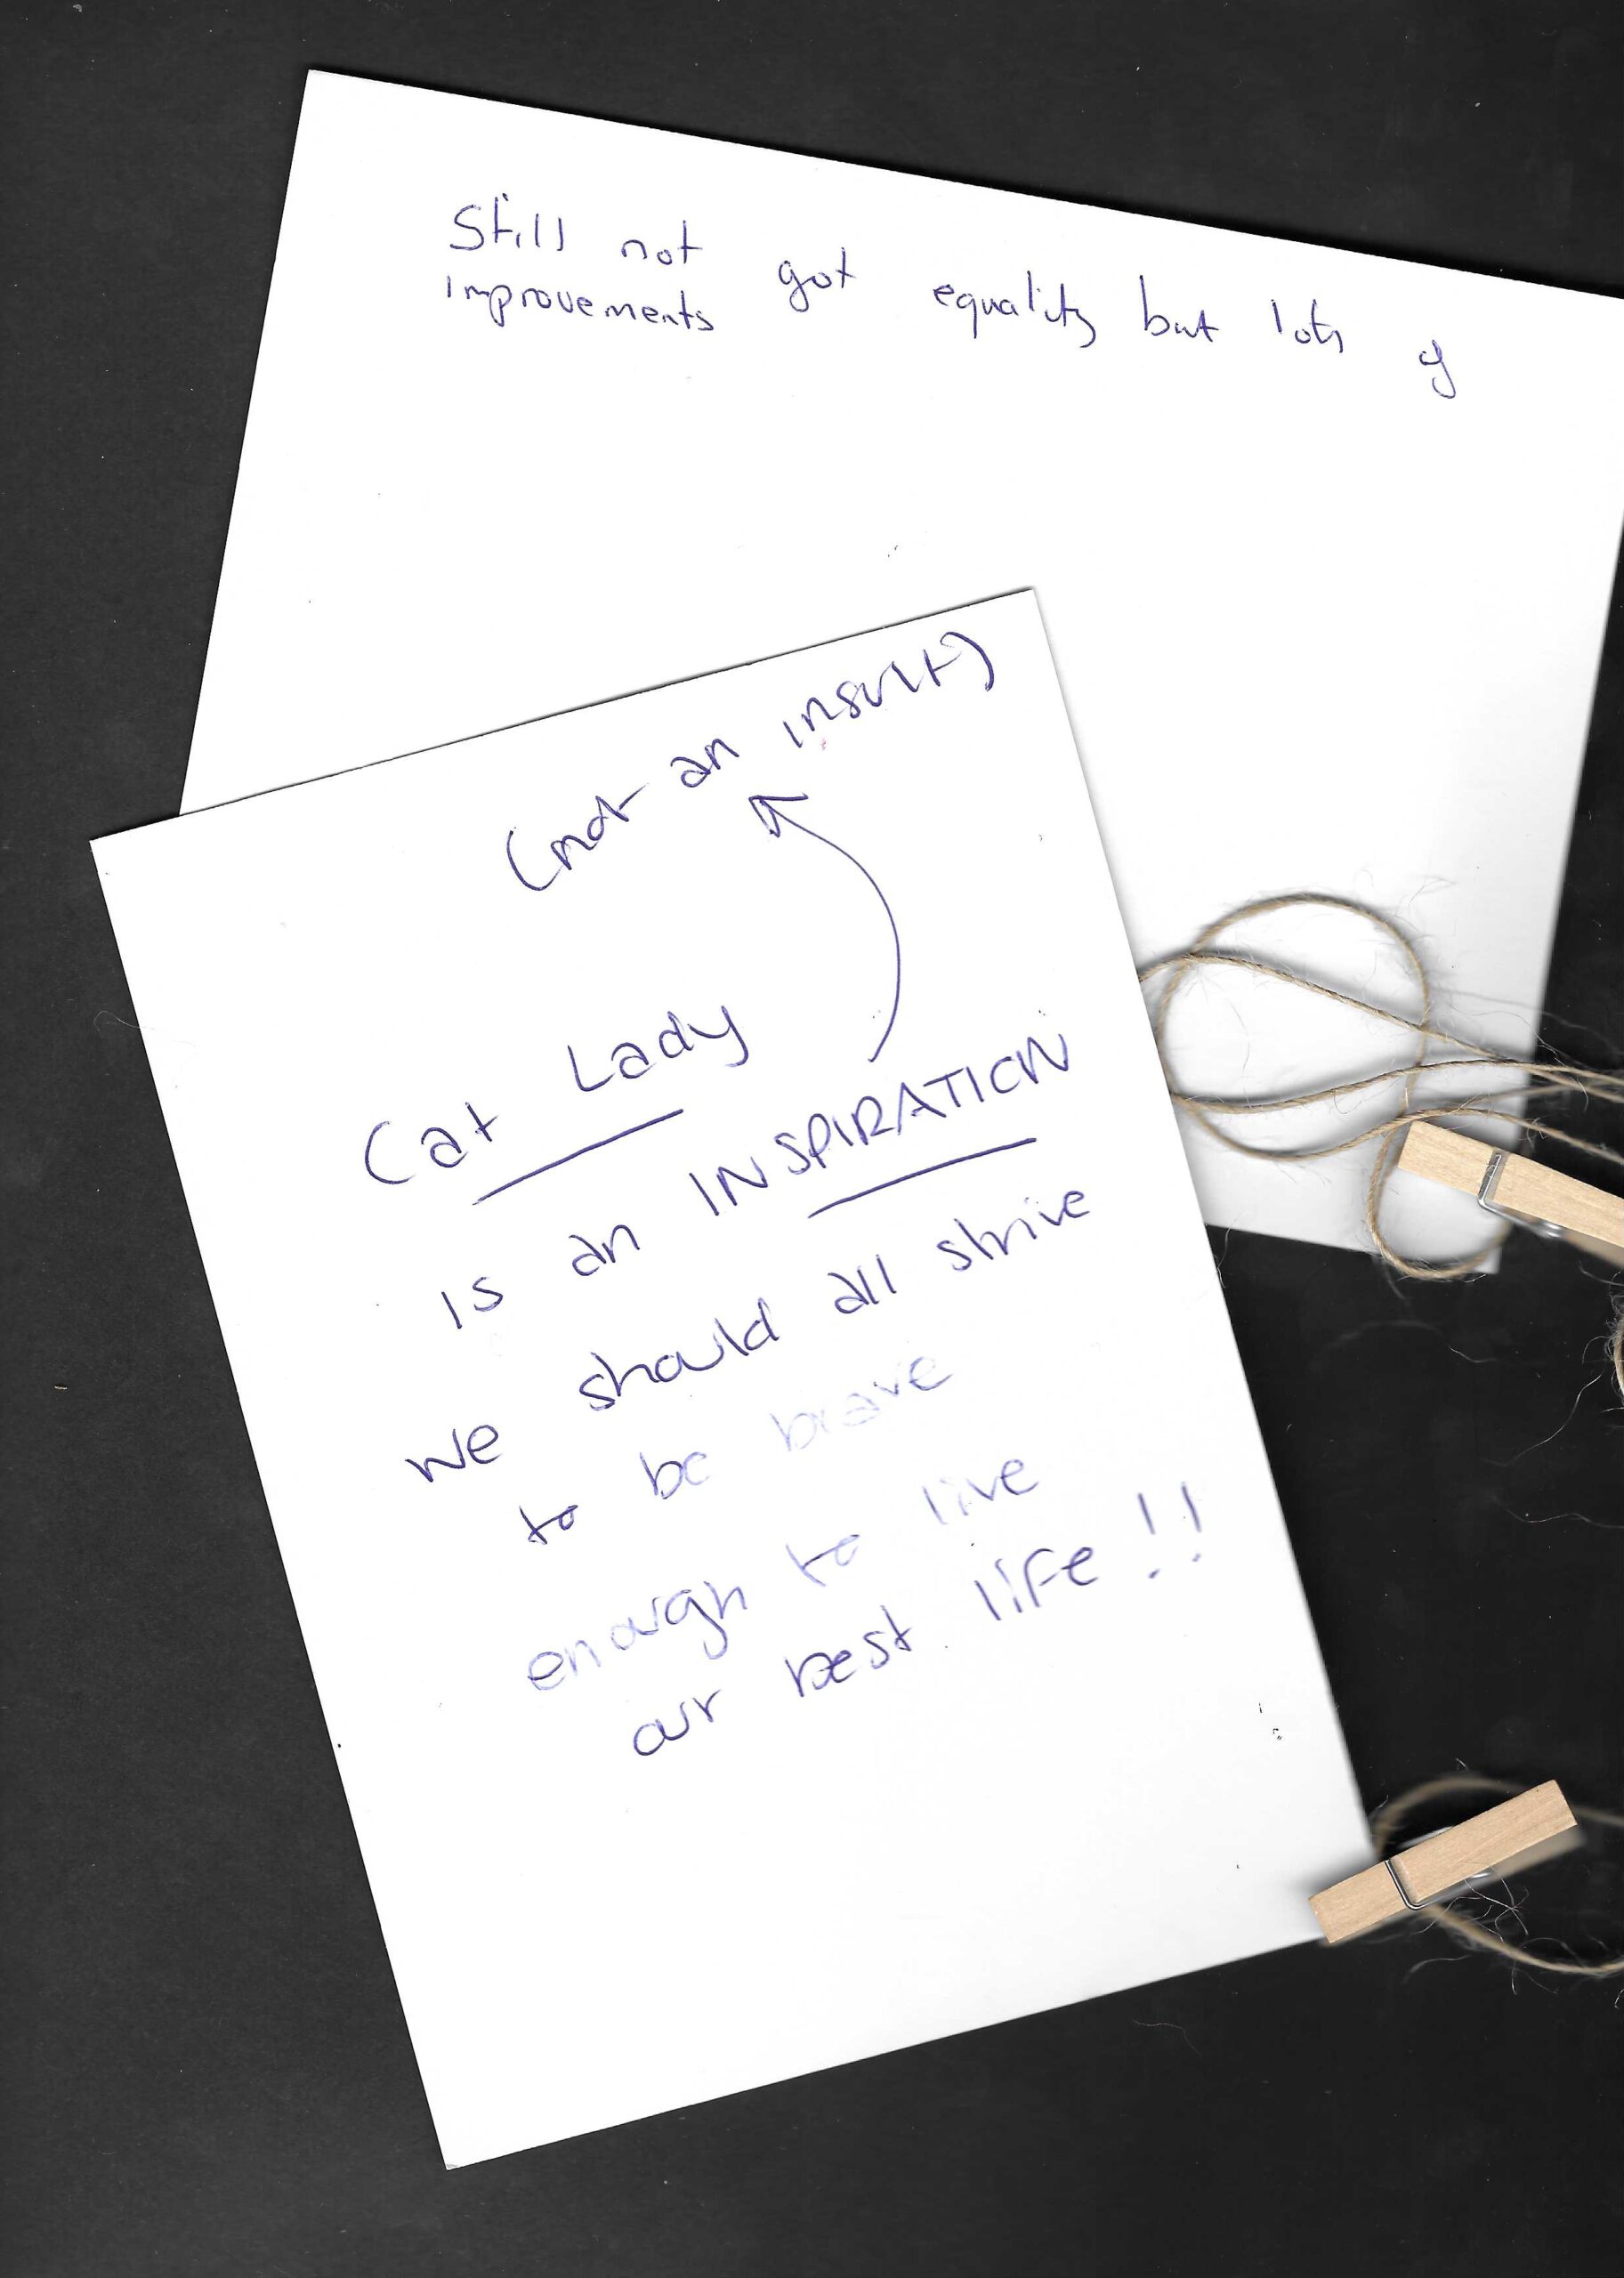 Still not got equality but lots of
improvements
(not an insult)
Cat Lady
is an INSPIRATION
we should all strive
to be brave
enough to live
our best life!!